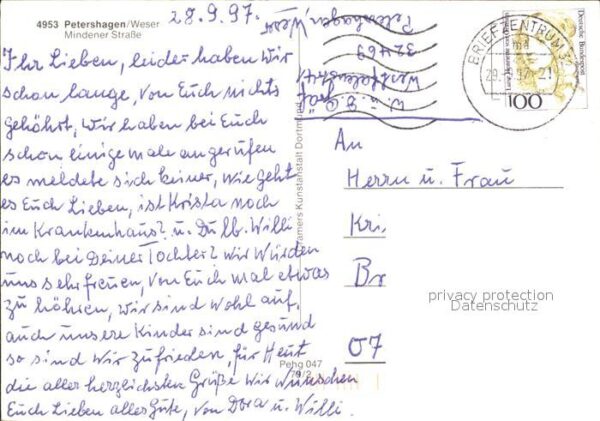 4953 Petershagen/Weser
Mindener Straße
28.9.97.
Ihr Lieben, leider haben wir
schon lange, von Euch nichts
gehöhrt, wir haben bei Euch
schon einige male angerufen
es meldete sich keiner, wie geht
es Euch Lieben, ist Krista noch
im Krankenhaus? u. Du lb. Willi
noch bei Deiner Tochter? wir würden
uns sehr freuen, von Euch mal etwas
zu höhren, wir sind wohl auf.
auch unsere Kinder sind gesund
so sind wir zufrieden, für Heut
die aller herzlichsten Grüße wir wünschen
Euch Lieben alles Gute, von Dora u. Willi.
Cramers Kunstanstalt Dortmund
Pehg 047
W. u. D.
32469
Petershagen, Wes
BRIEFZENTRUM 32
Deutsche Bundespost
100
An
Herrn u. Frau
Kri,
Br
07
privacy protection
Datenschutz